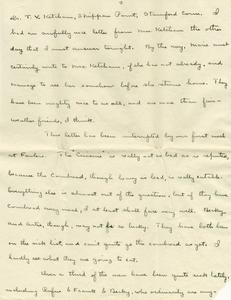 Dr. T. V. Ketcham, Shippan Point, Stamford Conn. I
had an awfully nice letter from Mrs Ketcham the other
day that I must answer tonight. By the way, Mom must
certainly write to Mrs. Ketcham, if she has not already, and
manage to see her somehow before she returns home. They
have been mighty nice to us all, and are more than fair-
weather friends, I think.
This letter has been interrupted by our first meal
at The "Cuisine" is really not as bad as is reputed,
because the Cornbread, though heavy as lead, is really eatable.
Everything else is almost out of the question, but if they have
Cornbread every meal, I at least shall fare very well. Becky
and however, may not be so lucky. They have both been
on the sick list, and can't quite go the cornbread as yet. I
hardly see what they are going to eat.
Over a third of the men have been quite sick lately,
including Rufus & Frantz & Becky, who ordinarily are